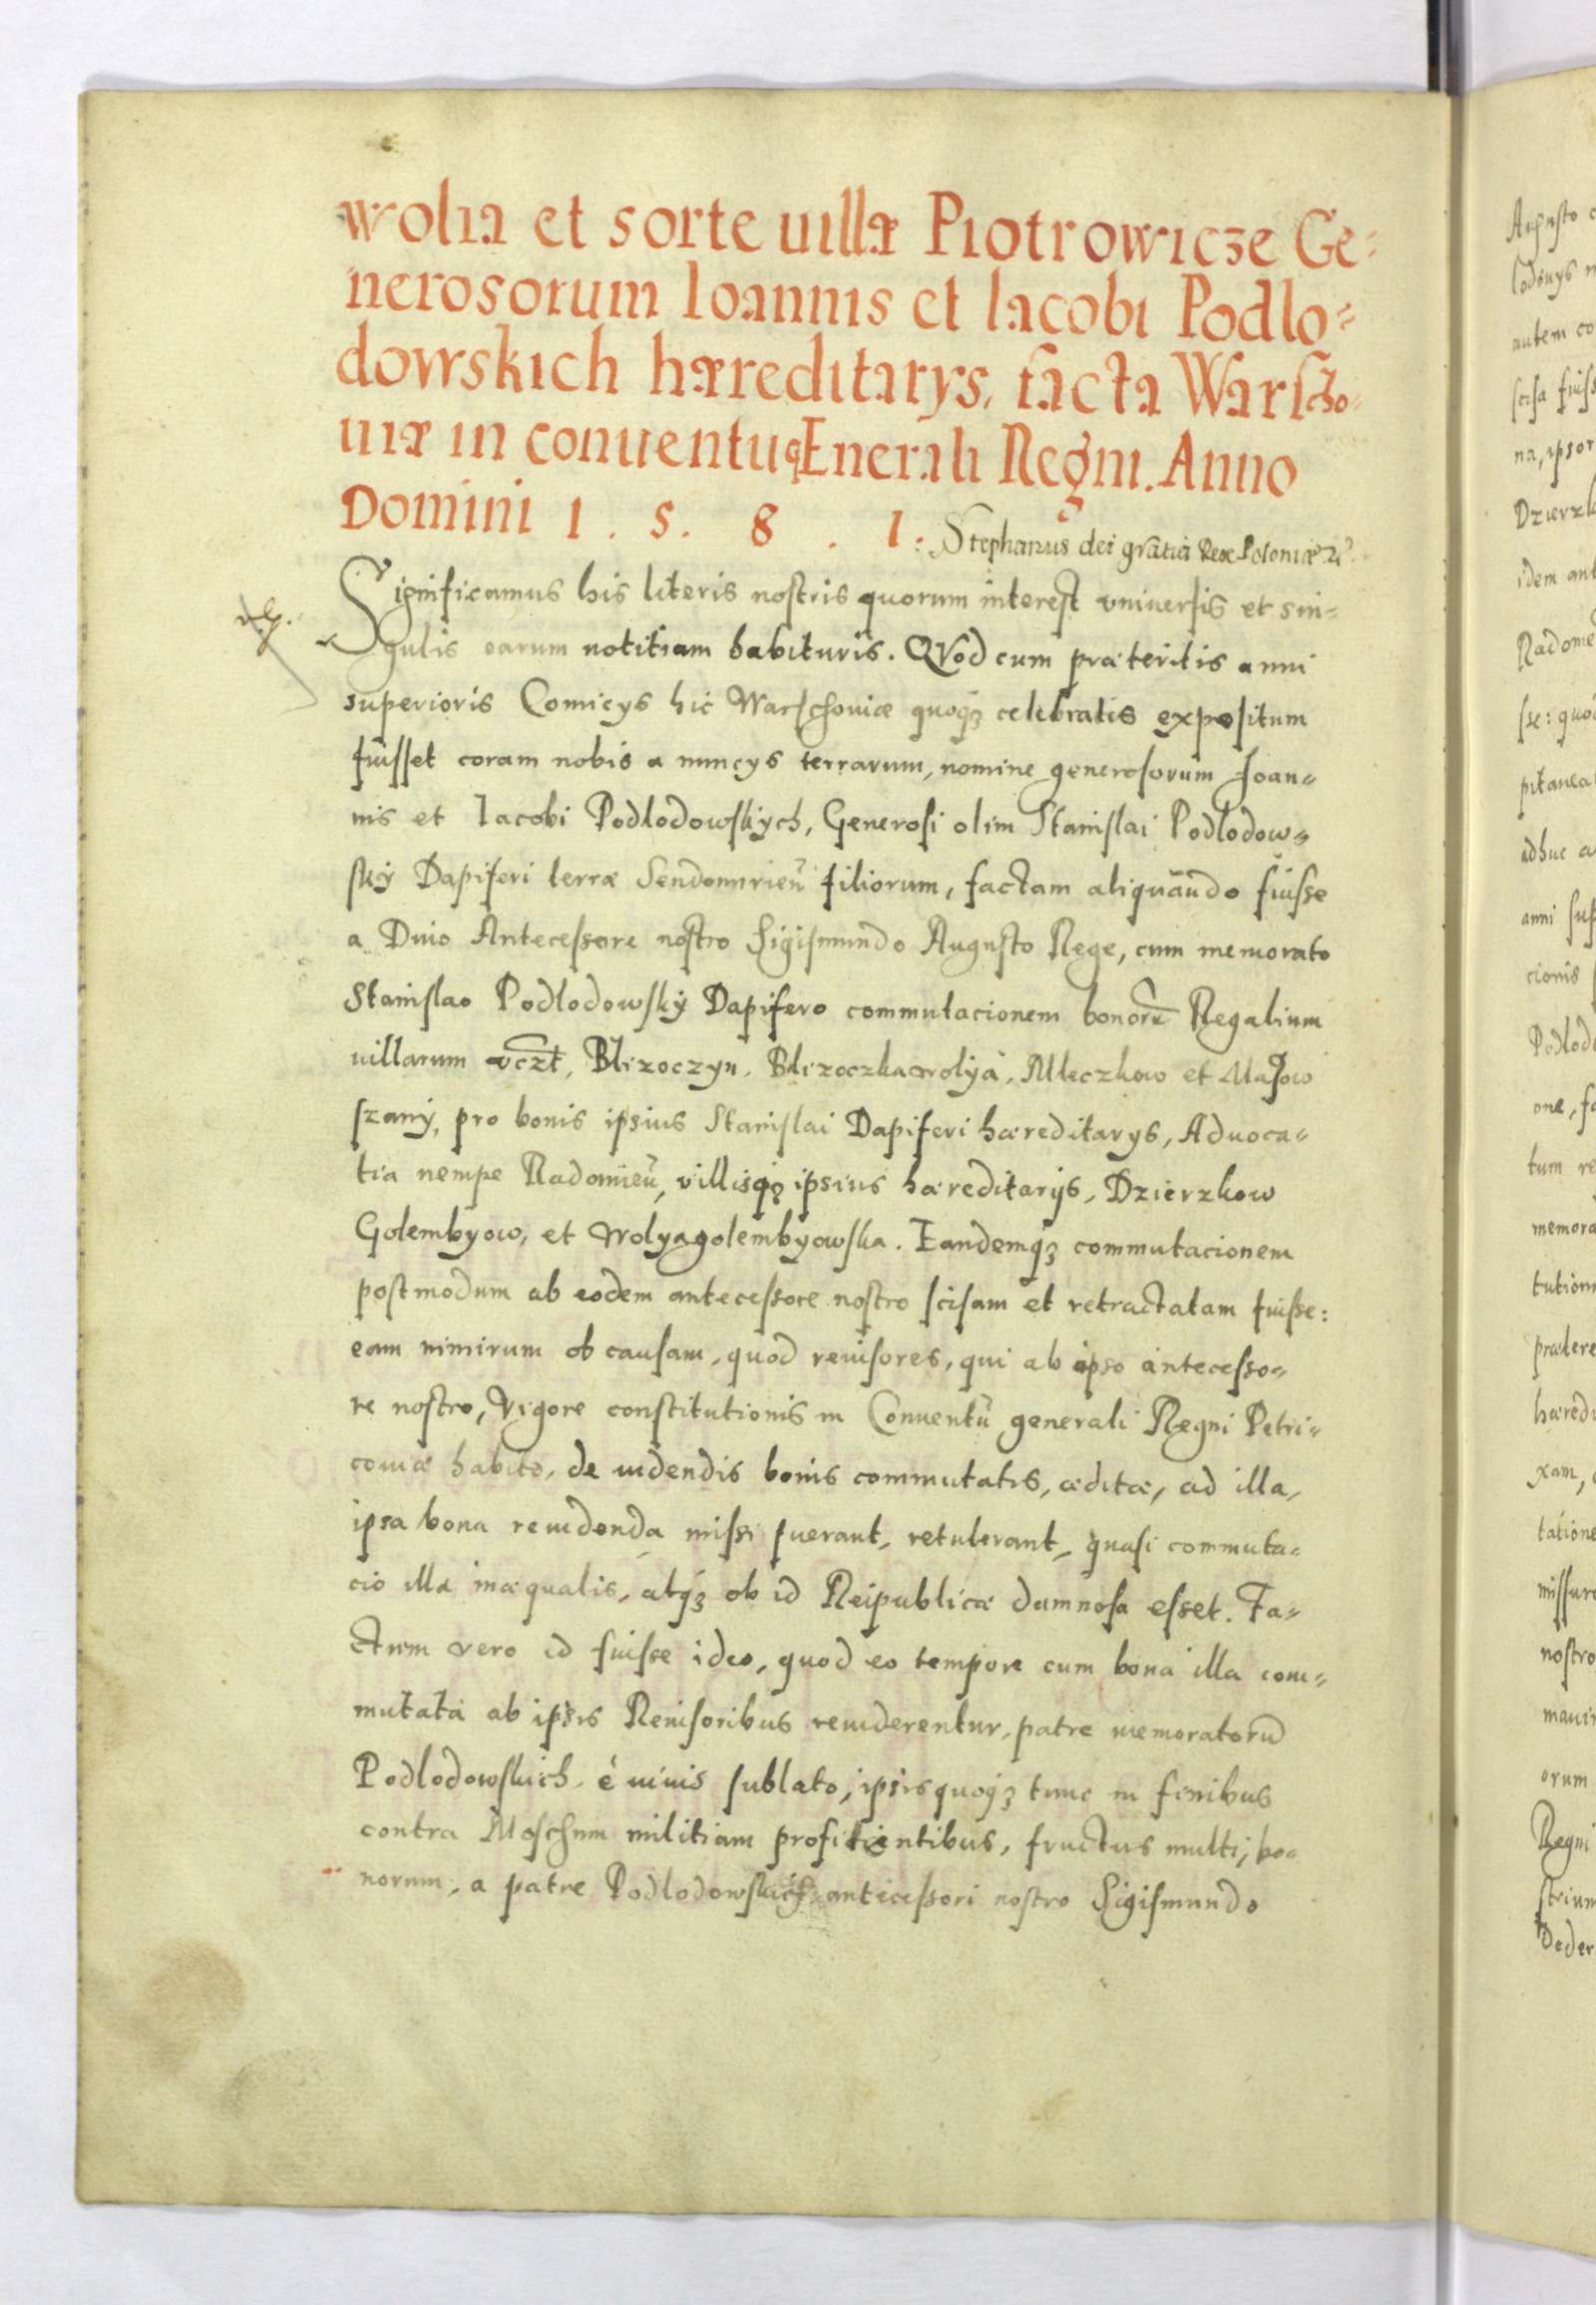 wolia et sorte uillæ Piotrowicze Ge=
nerosorum Ioannis et Iacobi Podlo=
dowskich hæreditarys, facta Warscho
uiæ in conuentu gEnerali Regni. Anno
Domini 1 . 5 . 8 . 1 : Stephanus dei gratia Rex Poloniæ
Significamus his literis nostris quorum interest vniuersis et sin=
gulis earum notitiam habituris. QVod cum præteritis anni
superioris Comicys hic Warschouiæ quoqꝫ celebratis expositum
fuisset coram nobis a nuncys terrarum, nomine generosorum Joan=
nis et Iacobi Podlodowskych, Generosi olim Stanislai Podlodow=
sky Dapiferi terræ Sendomirieñ filiorum, factam aliquando fuisse
a Diuo Antecessore nostro Sigismundo Augusto Rege, cum memorato
Stanislao Podlodowsky Dapifero commutacionem bonorū Regalium
uillarum vczt, Blizoczyn, Blizoczkawolya, Mleczkow et Masow
szany, pro bonis ipsius Stanislai Dapiferi hæreditarys, Aduoca=
tia nempe Radomieñ, villisqꝫ ipsius hæreditarys, Dzierzkow
Golembyow, et Wolyagolembyowska. Eandemqꝫ commutacionem
postmodum ab eodem antecessore nostro scisam et retractatam fuisse:
eam nimirum ob causam, quod reuisores, qui ab ipso antecesso=
re nostro, Vigore constitutionis in Conuentu generali Regni Petri=
couiæ habito, de uidendis bonis commutatis, æditæ, ad illa,
ipsa bona reuidenda missi fuerant, retulerant, quasi commuta=
cio illa inæqualis, atqꝫ ob id Reipublicæ damnosa esset. Fa=
ctum vero id fuisse ideo, quod eo tempore cum bona illa com=
mutata ab ipsis Reuisoribus reuiderentur, patre memoratorū
Podlodowskich, è uiuis sublato, ipsis quoqꝫ tunc in finibus
contra Moschum militiam profitientibus, fructus multi, bo=
norum, a patre Podlodowskich antecessori nostro Sigismundo